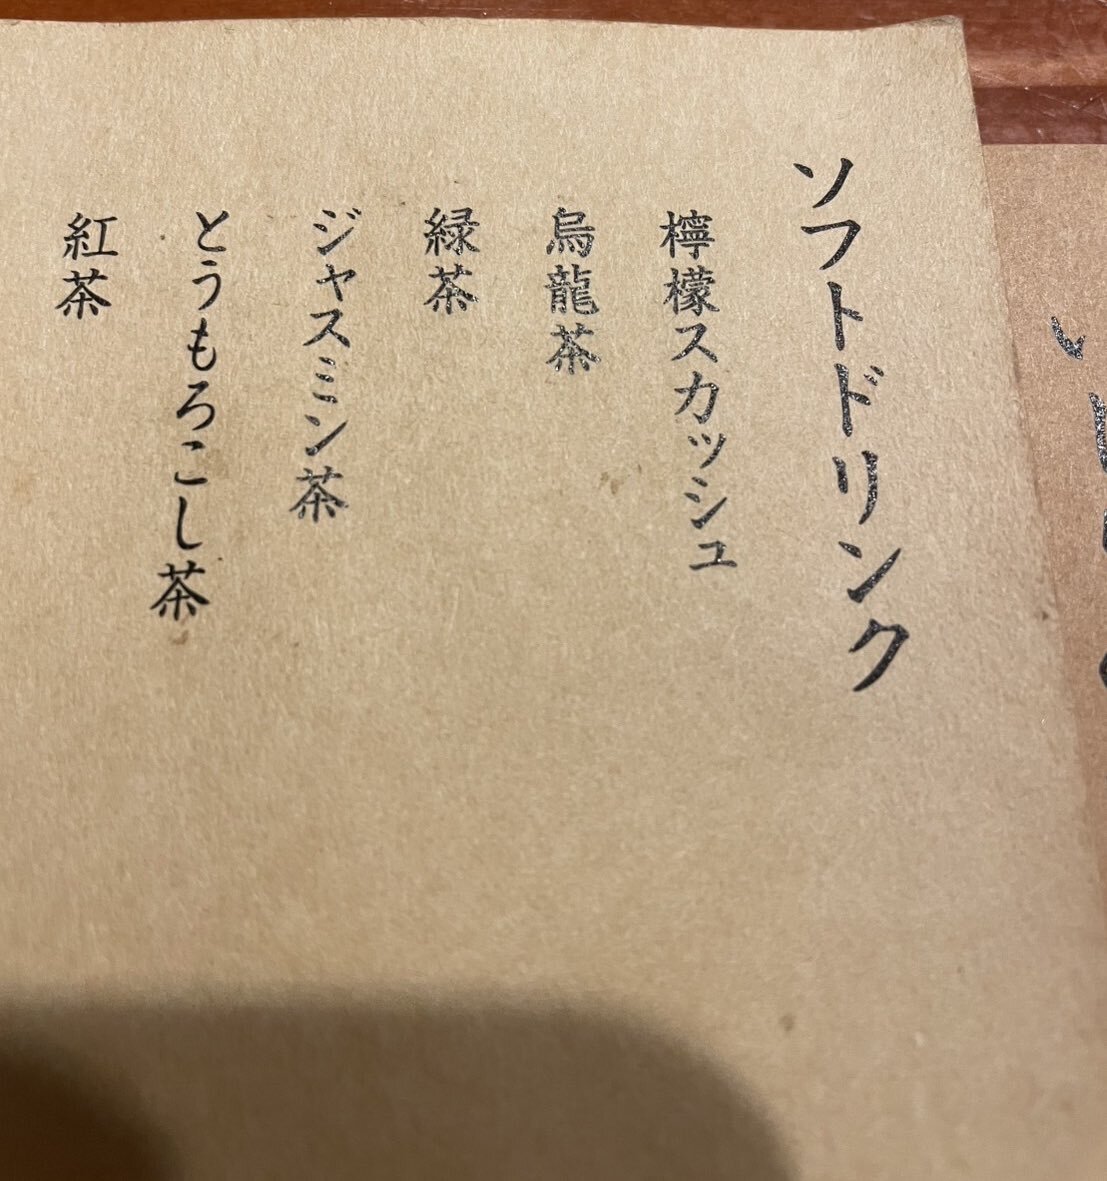 ソフトドリンク
檸檬スカッシュ
烏龍茶
緑茶
ジャスミン茶
とうもろこし茶
紅茶